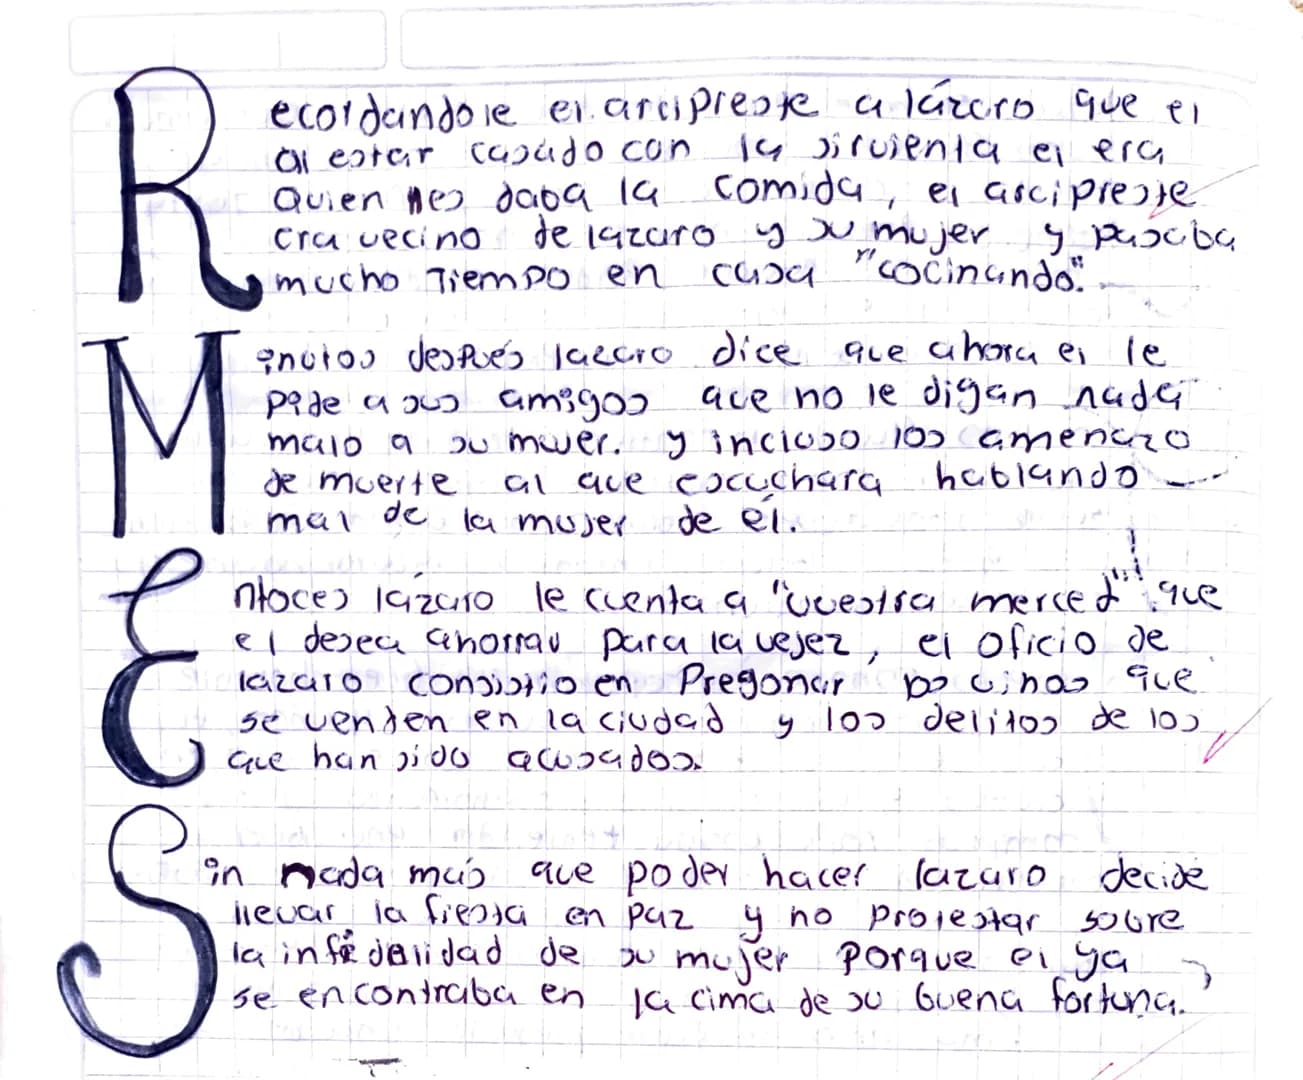 Recordandole el arcipreste a lázaro que el
al estar casado con la sirvienta el era
Quien les daba la comida, el arcipreste
era vecino de lazaro y su mujer y pasaba
mucho Tiempo en casa "cocinando".
Minutos después lazaro dice que ahora el le
pide a sus amigos que no le digan nada
malo a su mujer. y incluso los amenazo
de muerte al que escuchara hablando
mal de la mujer de él.
Entoces lázaro le cuenta a "vuestra merced" que
el desea ahorrar para la vejez, el oficio de
lazaro consistio en Pregonar los vinos que
se venden en la ciudad y los delitos de los
que han sido acusados.
Sin nada más que poder hacer lazaro decide
llevar la fiesta en paz y no protestar sobre
la infidelidad de su mujer porque el ya
se encontraba en la cima de su buena fortuna.